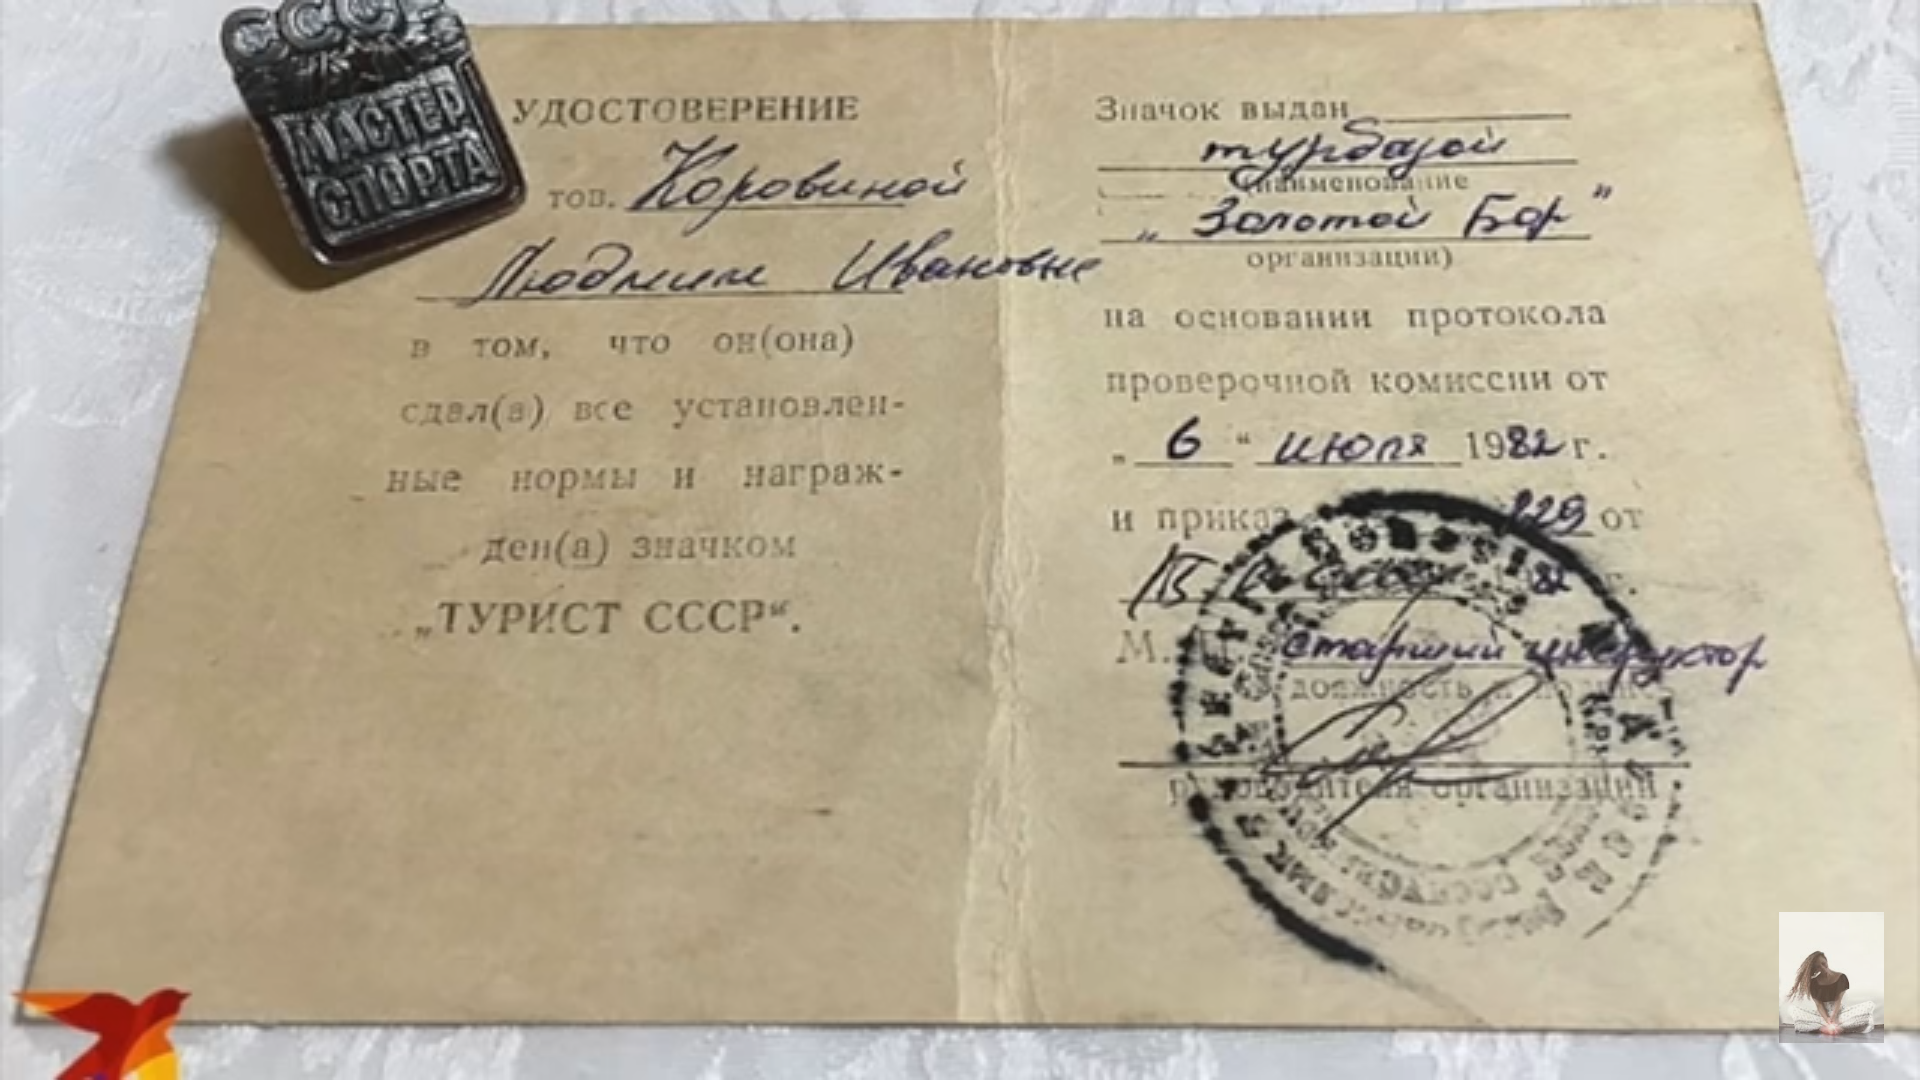 СССР
МАСТЕР
СПОРТА
УДОСТОВЕРЕНИЕ
тов. Коровиной
Людмиле Ивановне
в том, что он(она)
сдал(а) все установлен-
ные нормы и награж-
ден(а) значком
„ТУРИСТ СССР“.
Значок выдан
турбазой
(наименование
„Золотой Бор"
организации)
на основании протокола
проверочной комиссии от
„6“ июля 1982 г.
и приказ 229 от
г.
М.
старший инструктор
должность и подпись
руководителя организации